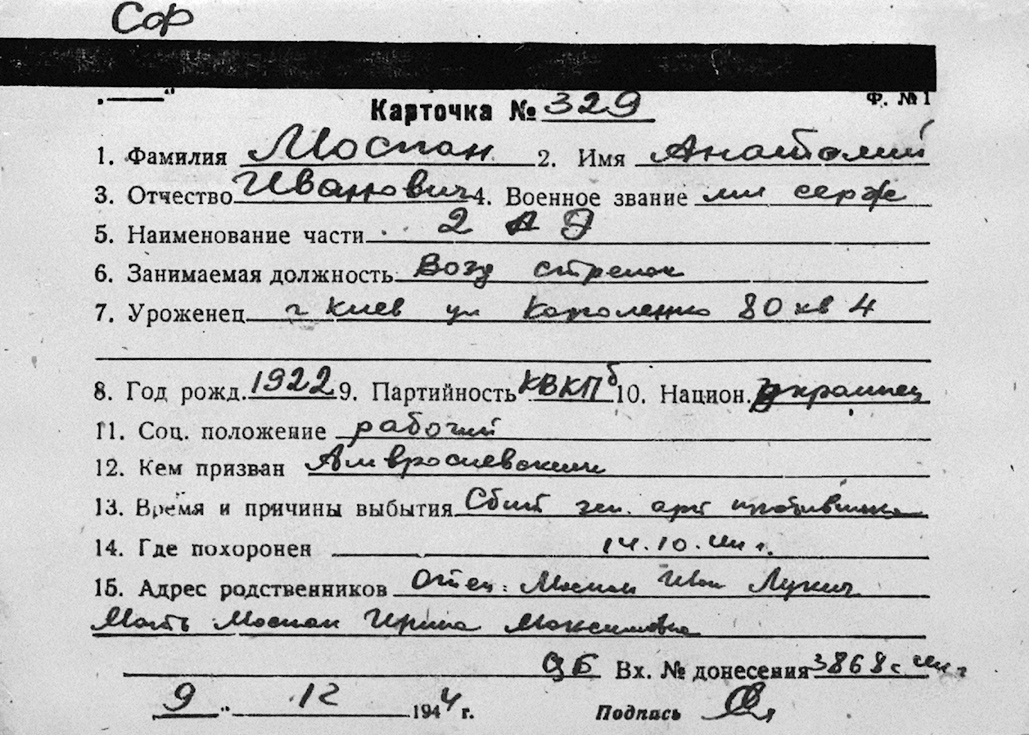 Сор
Карточка № 329 Ф. № 1
1. Фамилия Моспан 2. Имя Анатолий
3. Отчество Иванович 4. Военное звание мл серж
5. Наименование части 2 АЭ
6. Занимаемая должность Возд стрелок
7. Уроженец г Киев ул Короленко 80 кв 4
8. Год рожд. 1922 9. Партийность КВКПб 10. Национ. украинец
11. Соц. положение рабочий
12. Кем призван Амвросиевским
13. Время и причины выбытия Сбит зен. арт противника
14. Где похоронен 14.10.44 г.
15. Адрес родственников Отец: Моспан Иван Лукич
Мать Моспан Ирина Максимовна
Вх. № донесения 3868с 44 г
9 " 12 1944 г. Подпись